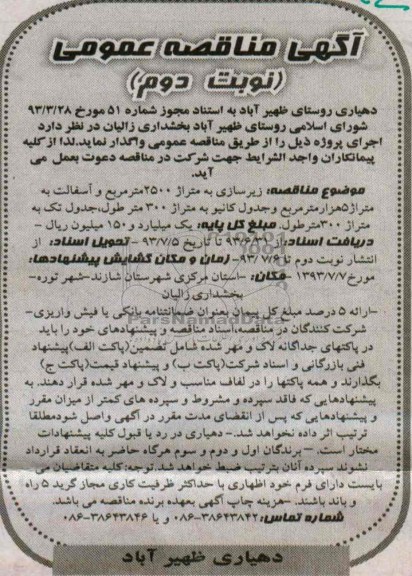 آگهی مناقصه عمومی
(نوبت دوم)
دهیاری روستای ظهیر آباد به استناد مجوز شماره ۵۱ مورخ ۹۳/۳/۲۸
شورای اسلامی روستای ظهیر آباد بخشداری زالیان در نظر دارد
اجرای پروژه ذیل را از طریق مناقصه عمومی واگذار نماید.لذا از کلیه
پیمانکاران واجد الشرایط جهت شرکت در مناقصه دعوت بعمل می
آید.
موضوع مناقصه: زیرسازی به متراژ ۲۵۰۰مترمربع و آسفالت به
متراژ۵هزارمترمربع وجدول وکانیو به متراژ ۳۰۰ متر طول،جدول تک به
متراژ ۳۰۰مترطول. مبلغ کل پایه: یک میلیارد و۱۵۰ میلیون ریال –
دریافت اسناد: از ۹۳/۶/۳۱ تا تاریخ ۹۳/۷/۵ –تحویل اسناد: از
انتشار نوبت دوم تا ۹۳/۷/۶– زمان و مکان گشایش پیشنهادها:
مورخ۱۳۹۳/۷/۷ –مکان: –استان مرکزی شهرستان شازند–شهر توره–
بخشداری زالیان
–ارائه ۵ درصد مبلغ کل پیمان بعنوان ضمانتنامه بانکی یا فیش واریزی–
شرکت کنندگان در مناقصه،اسناد مناقصه و پیشنهادهای خود را باید
در پاکتهای جداگانه لاک و مهر شده شامل تضمین(پاکت الف)پیشنهاد
فنی بازرگانی و اسناد شرکت(پاکت ب) و پیشنهاد قیمت(پاکت ج)
بگذارند و همه پاکتها را در لفاف مناسب و لاک و مهر شده قرار دهند. به
پیشنهادهایی که فاقد سپرده و مشروط و سپرده های کمتر از میزان مقرر
و پیشنهادهایی که پس از انقضای مدت مقرر در آگهی واصل شودمطلقا
ترتیب اثر داده نخواهد شد.– دهیاری در رد یا قبول کلیه پیشنهادات
مختار است. – برندگان اول و دوم و سوم هرگاه حاضر به انعقاد قرارداد
نشوند سپرده آنان بترتیب ضبط خواهد شد.توجه:کلیه متقاضیان می
بایست دارای فرم خود اظهاری با حداکثر ظرفیت کاری مجاز گرید ۵ راه
و باند باشند. –هزینه چاپ آگهی بعهده برنده مناقصه می باشد.
شماره تماس:۳۸۶۴۳۸۴۲–۰۸۶ و یا ۳۸۶۴۳۸۴۶–۰۸۶
دهیاری ظهیر آباد
ParsNamadData